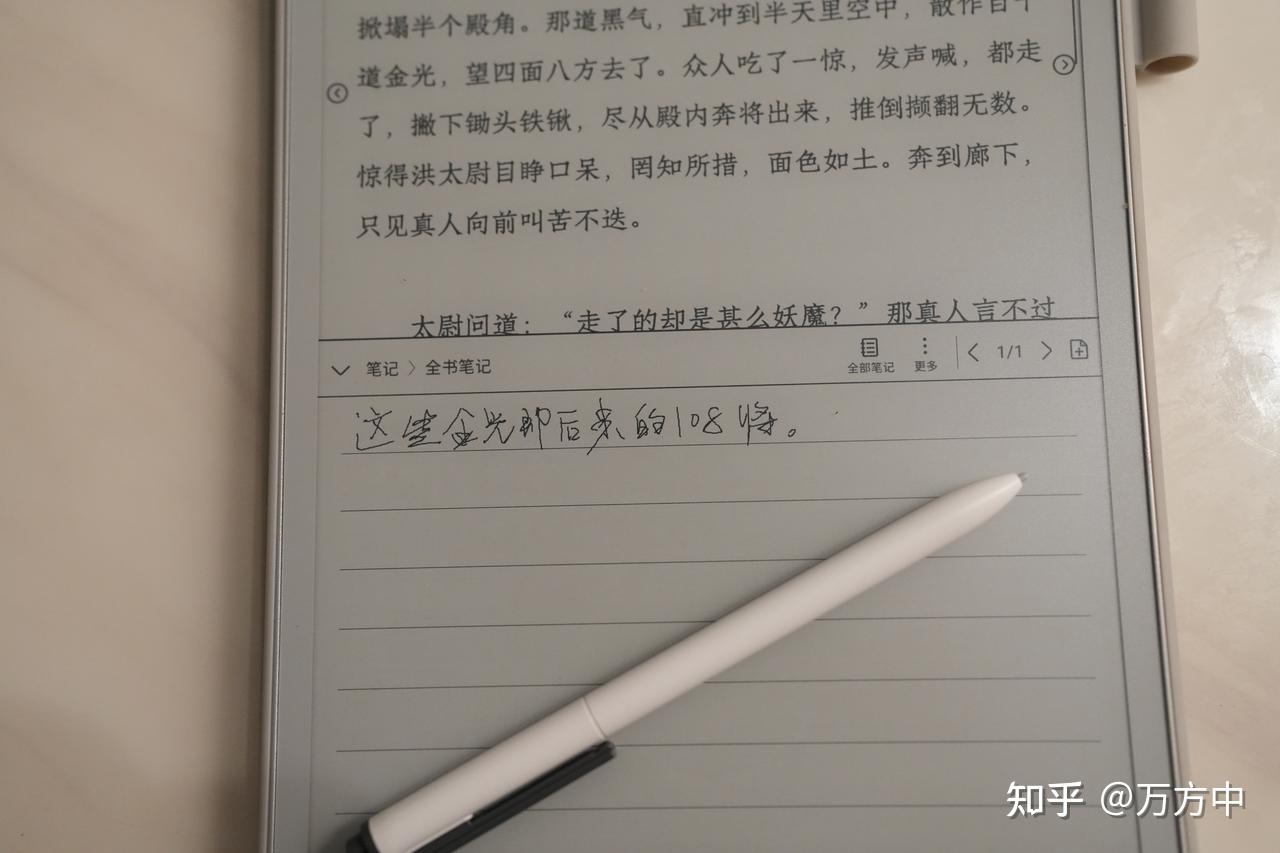 掀塌半个殿角。那道黑气，直冲到半天里空中，散作百十
道金光，望四面八方去了。众人吃了一惊，发声喊，都走
了，撇下锄头铁锹，尽从殿内奔将出来，推倒攧翻无数。
惊得洪太尉目睁口呆，罔知所措，面色如土。奔到廊下，
只见真人向前叫苦不迭。
太尉问道：“走了的却是甚么妖魔？”那真人言不过
笔记 > 全书笔记
全部笔记 更多 1/1
这些金光即后来的108将。
知乎 @万方中